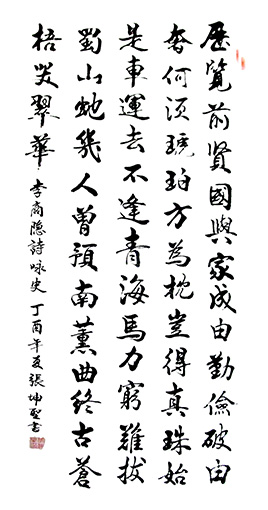 歷覽前賢國與家成由勤儉破由
奢何須琥珀方為枕豈得真珠始
是車運去不逢青海馬力窮難拔
蜀山虵幾人曾預南薰曲終古蒼
梧哭翠華 李商隱詩咏史 丁酉年夏張坤書